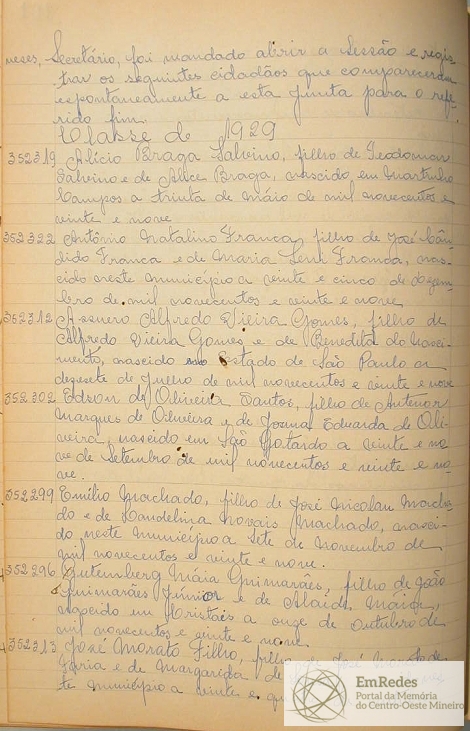 neses, Secretário, foi mandado abrir a Sessão e regis
trar os seguintes cidadãos que compareceram
espontaneamente a esta Junta para o refe
rido fim.
Classe de 1929
352319 Alicio Braga Salvino, filho de Teodomor
Salvino e de Alice Braga, nascido em Martinho
Campos a trinta de Máio de mil novecentos e
vinte e nove
352322 Antônio Natalino Franca, filho de José Cân
dido Franca e de Maria Franca, nas
cido neste município a vinte e cinco de dezem
bro de mil novecentos e vinte e nove
352312 Alfredo Vieira Gomes, filho de
Alfredo Vieira Gomes e de Benedita do Nasci
mento, nascido Estado de São Paulo a
dezesete de Julho de mil novecentos e vinte e nove
352302 Edson de Oliveira Santos, filho de Antenor
Marques de Oliveira e de Joema Eduarda de Oli
veira, nascido em São Gotardo a vinte e no
ve de Setembro de mil novecentos e vinte e no
ve.
352299 Emílio Machado, filho de José Nicolau Macha
do e de Candelina Novais Machado, nasci
do neste município a Sete de Novembro de
mil novecentos e vinte e nove.
352296 Gutemberg Máia Guimarães, filho de João
Guimarães Júnior e de Alaide Máia,
nascido em Cristais a onze de Outubro de
mil novecentos e vinte e nove.
352313 José Morato Filho, filho de José Morato de
Faria e de Margarida de
te município a vinte e
EmRedes
Portal da Memória
do Centro-Oeste Mineiro